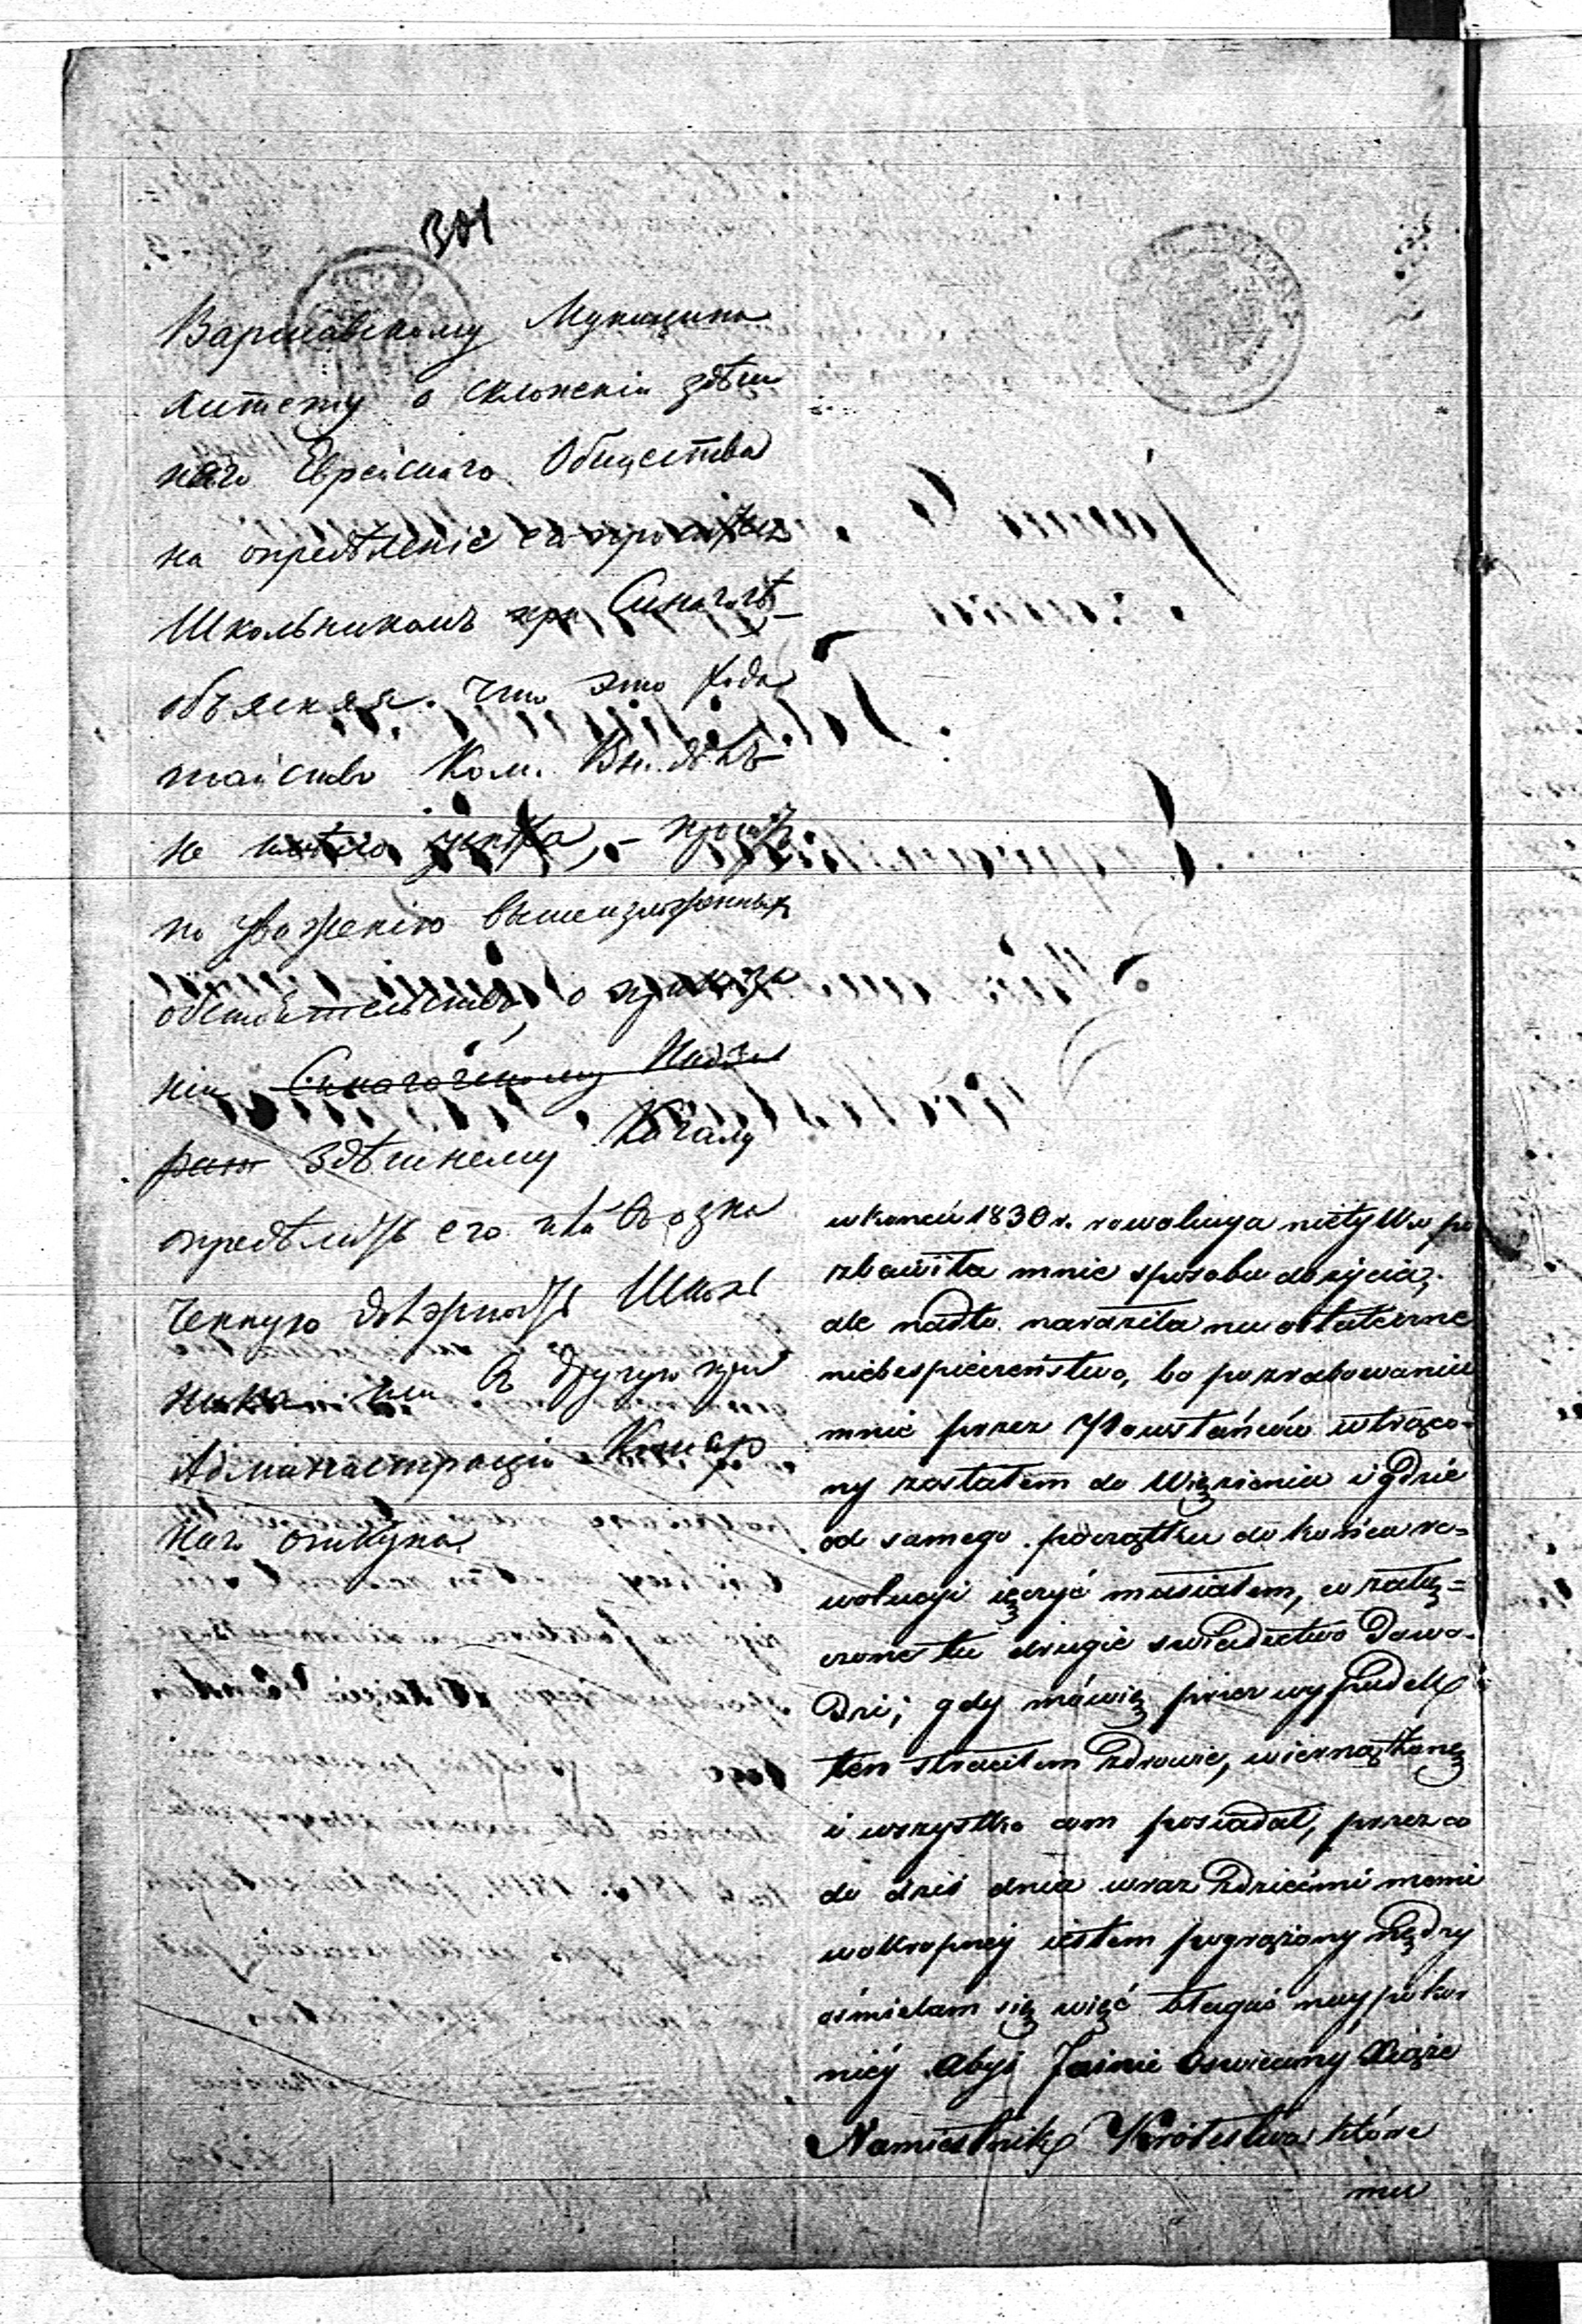 301
Варшавскому Муници-
литету о склоненіи здѣш
няго Еврейскаго Общества
на опредѣленіе его
Школьникомъ при Синагогѣ
объясняя что это хода
тайство Ком. Вн. Дѣлъ
не имѣло успѣха, – проситъ
по уваженію вышеизложенныхъ
обстоятельствъ, о приказа
ніи Синагогическому Надзи
рат здѣшнему Кагалу
опредѣлить его на озна
ченную должность Школь
ника или въ другую при
Администраціи Кошер
наго
w koncu 1830 r. rewolucya nietylko po
zbawiła mnie sposobu do życia,
ale nadto naraziła na ostateczne
niebespieczeństwo, bo po zrabowaniu
mnie przez Powstańców wtrąco-
ny zostałem do Więzienia i gdzie
od samego początku do końca re=
wolucyi ięczyć musiałem, co załą=
czone tu drugie swiadectwo Dowo-
dzi; gdy mówię przez wypadek
ten straciłem Zdrowie, wierną Żonę
i wszystko com posiadał, przez co
do dziś dnia wraz Zdziećmi memi
wokropney iestem pogrążony Nędzy
ośmielam się więc błagać naypokor
niéy Abyś Jaśnie Oswiecony Xiąże
Namiestnik Królestwa które
mu